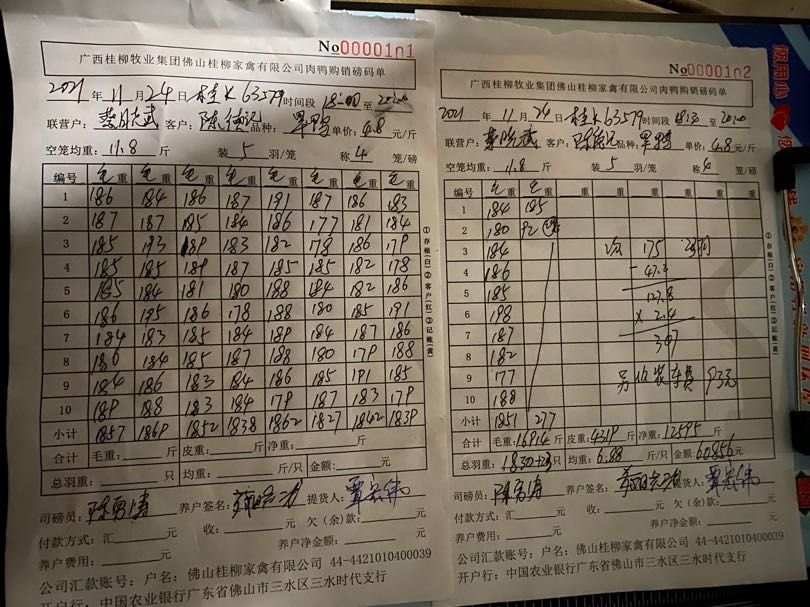 No0000101
广西桂柳牧业集团佛山桂柳家禽有限公司肉鸭购销磅码单
2021年11月24日 桂K63579 时间段 18:00 至
联营户: 客户: 品种: 单价:4.8元/斤
空笼均重:11.8斤 装5羽/笼 称4笼/磅
编号 毛重 毛重 毛重 毛重 毛重 毛重 毛重 毛重
1 186 184 186 187 191 187 186 183
2 187 187 185 184 186 177 181 184
3 185 193 189 183 182 178 186 179
4 185 185 189 187 185 185 182 178
5 185 184 181 180 188 184 182 186
6 186 195 186 178 188 180 185 191
7 184 183 185 184 189 184 187 186
8 186 184 185 187 188 180 179 188
9 184 186 183 184 186 185 191 185
10 189 188 183 184 179 187 183 179
小计 1857 1869 1852 1838 1862 1827 1842 1839
合计 毛重: 斤 皮重: 斤 净重: 斤
总羽重: 只 均重: 斤/只 金额: 元
司磅员: 养户签名: 提货人:
付款方式:汇 元 收: 元 欠(余)款: 元
养户费用: 元 养户净金额: 元
公司汇款账号:户名:佛山桂柳家禽有限公司 44-4421010400039
开户行:中国农业银行广东省佛山市三水区三水时代支行
①存根(白)②客户(红)③记账(黄)
No00001102
广西桂柳牧业集团佛山桂柳家禽有限公司肉鸭购销磅码单
2021年11月24日 桂K63579 时间段 至 20:00
联营户: 客户: 品种: 单价:4.8元/斤
空笼均重:11.8斤 装5羽/笼 称4笼/磅
编号 毛重 毛重 重 重 重 重 重 重
1 184 185
2 180 92
3 184 175
4 186 -47.2
5 185 127.8
6 198 ×2.4
7 187 307
8 182
9 177 另收装车费 93元
10 188
小计 1851 277
合计 毛重:16914斤 皮重:4319斤 净重:12595斤
总羽重: 只 均重:6.88斤/只 金额:60856元
司磅员: 养户签名: 提货人:
付款方式:汇 元 收: 元 欠(余)款: 元
养户费用: 元 养户净金额: 元
公司汇款账号:户名:佛山桂柳家禽有限公司 44-4421010400039
开户行:中国农业银行广东省佛山市三水区三水时代支行
①存根(白)②客户(红)③记账(黄)